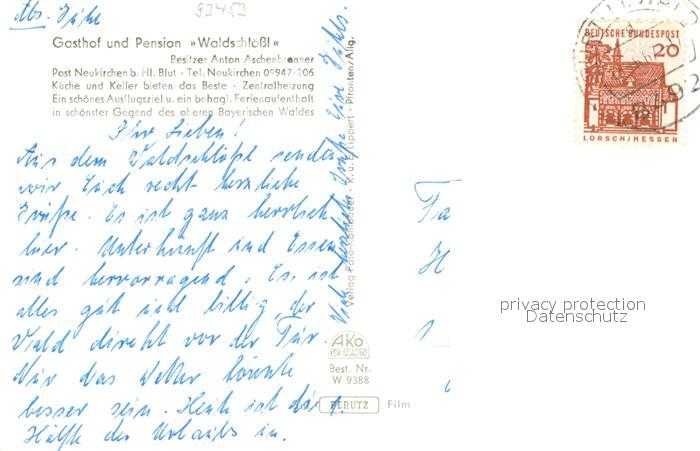 Abs. Jühe
93453
Gasthof und Pension »Waldschlößl«
Besitzer Anton Aschenbrenner
Post Neukirchen b. Hl. Blut · Tel. Neukirchen 09947-206
Küche und Keller bieten das Beste · Zentralheizung
Ein schönes Ausflugsziel u. ein behagl. Ferienaufenthalt
in schönster Gegend des oberen Bayerischen Waldes
Ihr Lieben!
Aus dem Waldschlößl senden
wir Euch recht herzliche
Grüße. Es ist ganz herrlich
hier. Unterkunft und Essen
sind hervorragend. Es ist
alles gut und billig, der
Wald direkt vor der Tür.
Nur das Wetter könnte
besser sein. Heute ist die 1.
Hälfte des Urlaubs um.
Viele herzliche Grüße Eure
Verlag Foto-Kohlbauer · K. u. E. Kippert · Pfronten/Allg.
AKO
Best. Nr.
W 9388
PERUTZ Film
DEUTSCHE BUNDESPOST
20
LORSCH/HESSEN
8492
Ta
H
1
privacy protection
Datenschutz